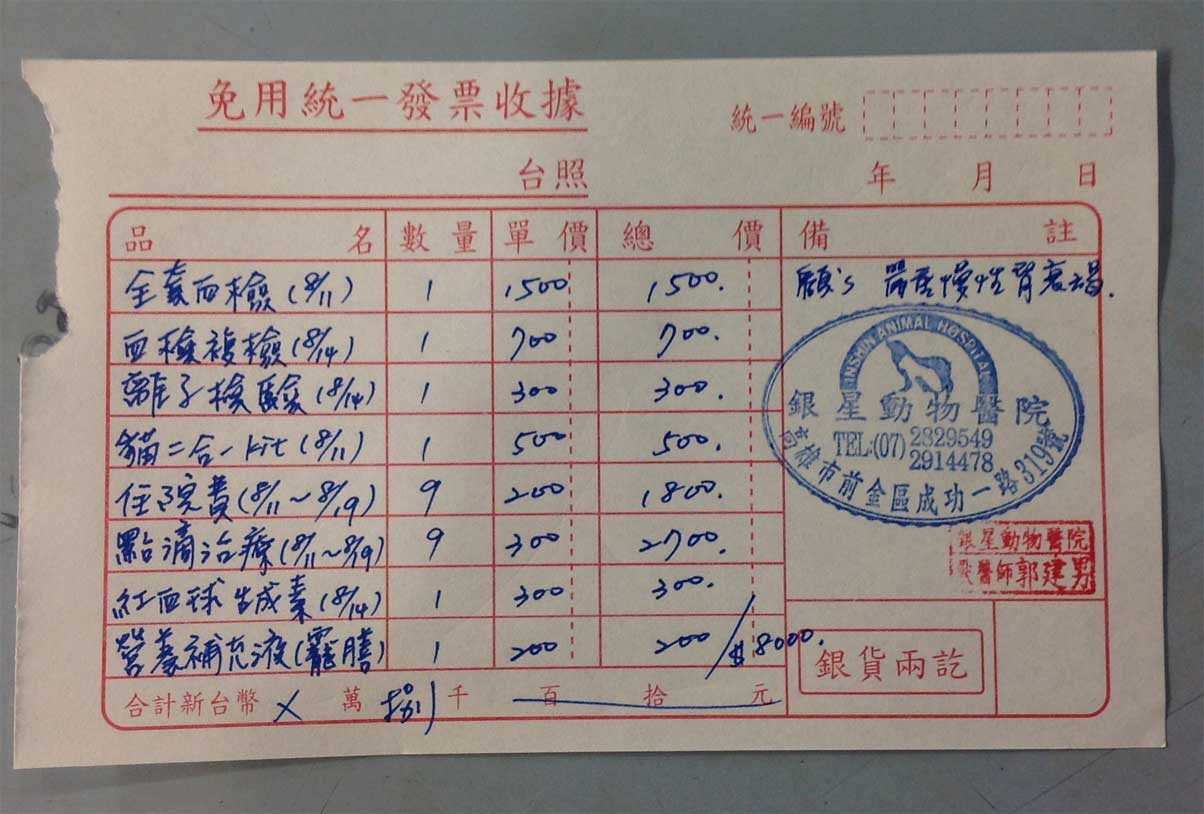 免用統一發票收據
統一編號
台照
年 月 日
品名 數量 單價 總價 備註
全套血檢(8/11) 1 1500 1500.
血檢複檢(8/14) 1 700 700.
離子檢驗(8/14) 1 300 300.
貓二合一kit(8/11) 1 500 500.
住院費(8/11~8/19) 9 200 1800.
點滴治療(8/11~8/19) 9 300 2700.
紅血球生成素(8/14) 1 300 300.
營養補充液(寵膳) 1 200 200 /$8000.
合計新台幣 X 萬 捌 千 百 拾 元
慢性腎衰竭.
INSHIN ANIMAL HOSPITAL
銀星動物醫院
TEL:(07) 2829549
2914478
高雄市前金區成功一路319號
銀星動物醫院
獸醫師郭建男
銀貨兩訖